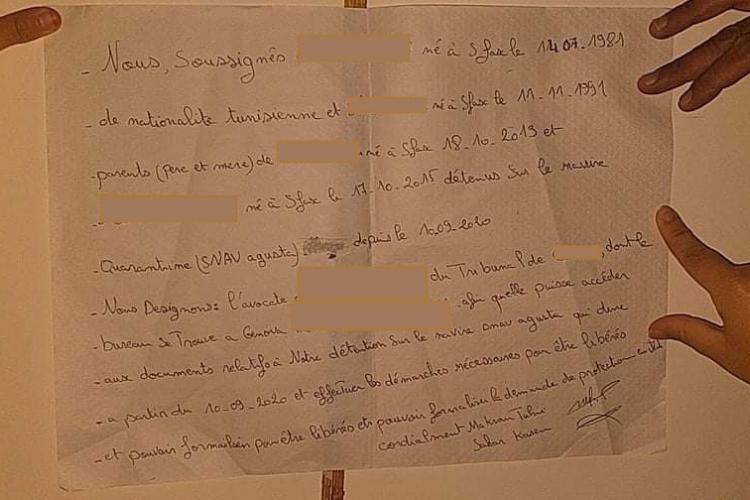 - Nous, Soussignés né à Sfax le 14 07. 1981
- de nationalité tunisienne et né à Sfax le 11-11-1991
- parents (père et mere) de né à Sfax 18-10-2013 et
- né à Sfax le 17-10-2015 détenus Sur le
- Quarantine (SNAV agusta) depuis le 10.09-2020
- Nous Designons: l'avocate du Tribunal de , dont le
- bureau Se Trouve a Genova , afin quelle puisse accéder
- aux documents relatifs à Notre détention sur le navire snav agusta qui dure
- a partir du 10-09-2020 et effectuer les démarches nécessaires pour être libérés
- et pouvoir pour être libérés et pouvoir formaliser la demande de protection
cordialment